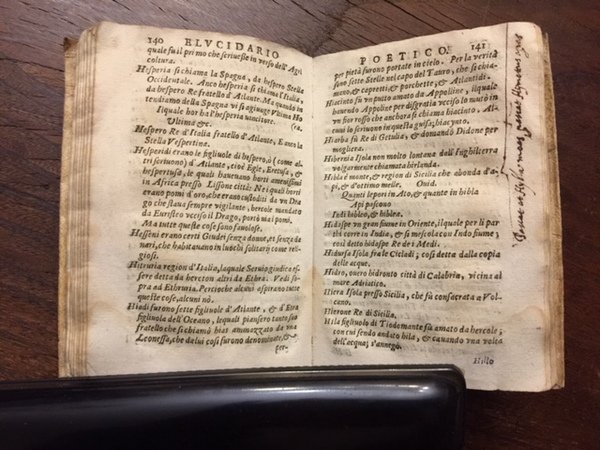 140 ELVCIDARIO
quale fu il primo che scriuesse in verso dell'Agri
coltura.
Hesperia si chiama la Spagna, da hespero Stella
Occidentale. Anco hesperia si chiama l'Italia,
da hespero Re fratello d'Atlante. Ma quando in
tendiamo della Spagna vi si aggiunge Vltima Ho
Iaquale hor ha l'hesperia vincitore. (ra.
Vltima &c.
Hespero Re d'Italia fratello d'Atlante, E anco la
Stella Vespertina.
Hesperidi erano le figliuole di hespero, ò (come al
tri scriuono) d'Atlante, cioè Egle, Eretusa, &
hespertusa, le quali haueuano horti amenissimi
in Africa presso Lissone città: Nei quali horti
erano pomi d'oro, che erano custoditi da vn Dra
go che staua sempre vigilante, hercole mandato
da Euristeo vccise il Drago, portò via i pomi.
Ma tutte queste cose son fauolose.
Hesseni erano certi Giudei senza donne, et senza da
nari, che habitauano in luochi solitarij come re-
ligiosi.
Hitruria region d'Italia, laquale Seruio giudica es-
sere detta da hereton altri da Ebreu. Vedi di so-
pra ad Ethruria. Percioche alcuni aspirano tutte
quelle cose, alcuni nò.
Hiadi furono sette figliuole d'Atlante, & d'Etra
figliuola dell'Oceano, lequali piansero tanto suo
fratello che si chiamò hias ammazzato da vna
Leonessa, che da lui cosi furono denominate, &
per
POETICO. 141
per pietà furono portate in cielo. Per la verità
sono sette Stelle nel capo del Tauro, che si chia-
mono, & capretti & porchette, & Atlantidi.
Hiacinto fu vn putto amato da Appolline, il quale
hauendo Appoline per disgratia vcciso lo mutò in
vn fior rosso che anchora si chiama hiacinto. Al-
cuni la scriuono in questa guisa; hiacynto.
Hiarba fù Re di Getulia, & domandò Didone per
mogliera.
Hibernia Isola non molto lontana dall'Inghilterra
volgarmente chiamata hirlanda.
Hibla è monte, & region di Sicilia che abonda d'a-
pi, & d'ottimo melle. Ouid.
Quanti lepori in Ato, & quante in hibla
Api pascono
Indi hibleo, & hiblea.
Hidaspe vn gran fiume in Oriente, il quale per li par
thi corre in India, & si mescola con Indo fiume;
così detto hidaspe Re de i Medi.
Hidursa Isola fra le Cicladi; così detta dalla copia
delle acque.
Hidro, ouero hidronto città di Calabria, vicina al
mare Adriatico.
Hiera Isola presso Sicilia, che fù consacrata a Vol-
cano.
Hierone Re di Sicilia.
Hila figliuolo di Tiodomante fù amato da hercole;
con cui sendo andato hila, & cauando vna volta
dell'acque; s'annegò.
Hillo